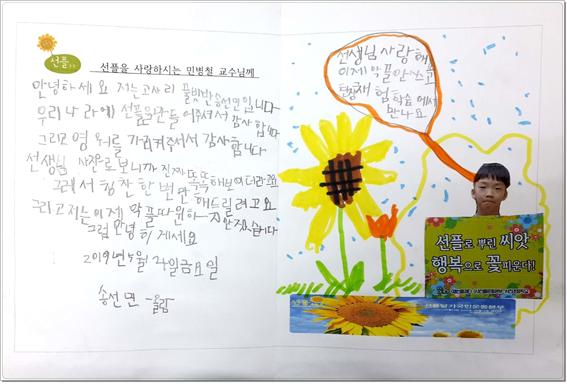 선플
선플을 사랑하시는 민병철 교수님께
안녕하세요 저는고사리 풀잎반송선민입니다
우리나라에 선플일만들어주셔서 감사합니다
그리고영어를 가리켜주셔서 감사합니다
선생님 사진로보니까 진짜 똑똑해보이더라고요
그래서 칭찬 한번만해드릴려고요
그리고저는이제 악플따위하지않겠습니다
그럼안녕히계세요
2019년 월 일금요일
올림
선생님사랑해
이제악플안쓰고
체험학습에서
만나요
선플로 뿌린 씨앗
행복으로 꽃피운다!
선플달기국민운동본부